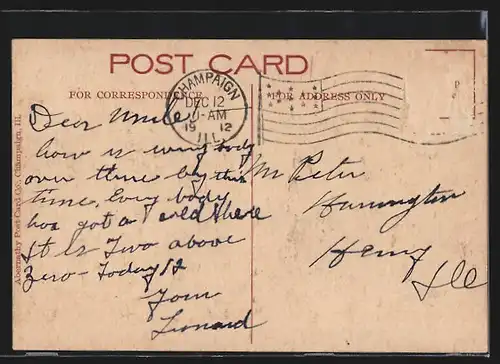 POST CARD
CHAMPAIGN
DEC 12
-AM
19 12
ILL.
FOR CORRESPONDENCE
FOR ADDRESS ONLY
Abernathy Post Card Co., Champaign, Ill.
Dear Uncle
how is every body
over there by this
time. Every body
has got a cold here
It is Two above
Zero - Today 12
Your
Leonard
Mr Peter
Harrington
Henry
Ill